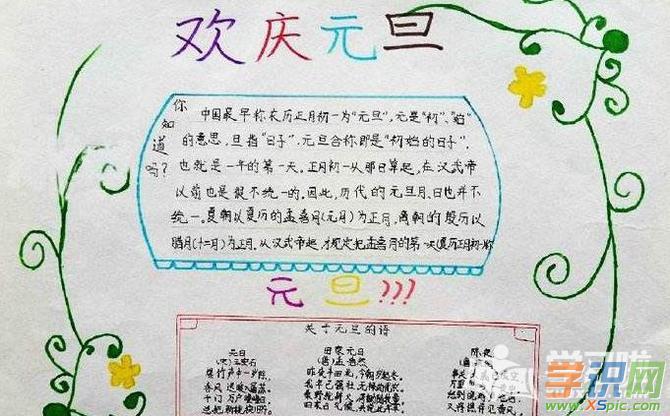 欢庆元旦
你知道吗?
中国最早称农历正月初一为"元旦",元是"初"、"始"
的意思,旦指"日子",元旦合称即是"初始的日子",
也就是一年的第一天。正月初一从那日算起,在汉武帝
以前也是很不统一的。因此,历代的元旦月、日也并不
统一。夏朝以夏历的孟喜月(元月)为正月,商朝的殷历以
腊月(十二月)为正月,从汉武帝起,才规定把孟喜月的第一天(夏历正月初一)
元旦!!!
关于元旦的诗
元日
(宋)王安石
爆竹声中一岁除,
春风送暖入屠苏
千门万户曈曈日
总把新桃换旧符。
田家元日
(唐)孟浩然
昨夜斗回北,今朝岁起东,
我年已强仕,无禄尚忧农。
除夜
学识网
www.XSpic.com